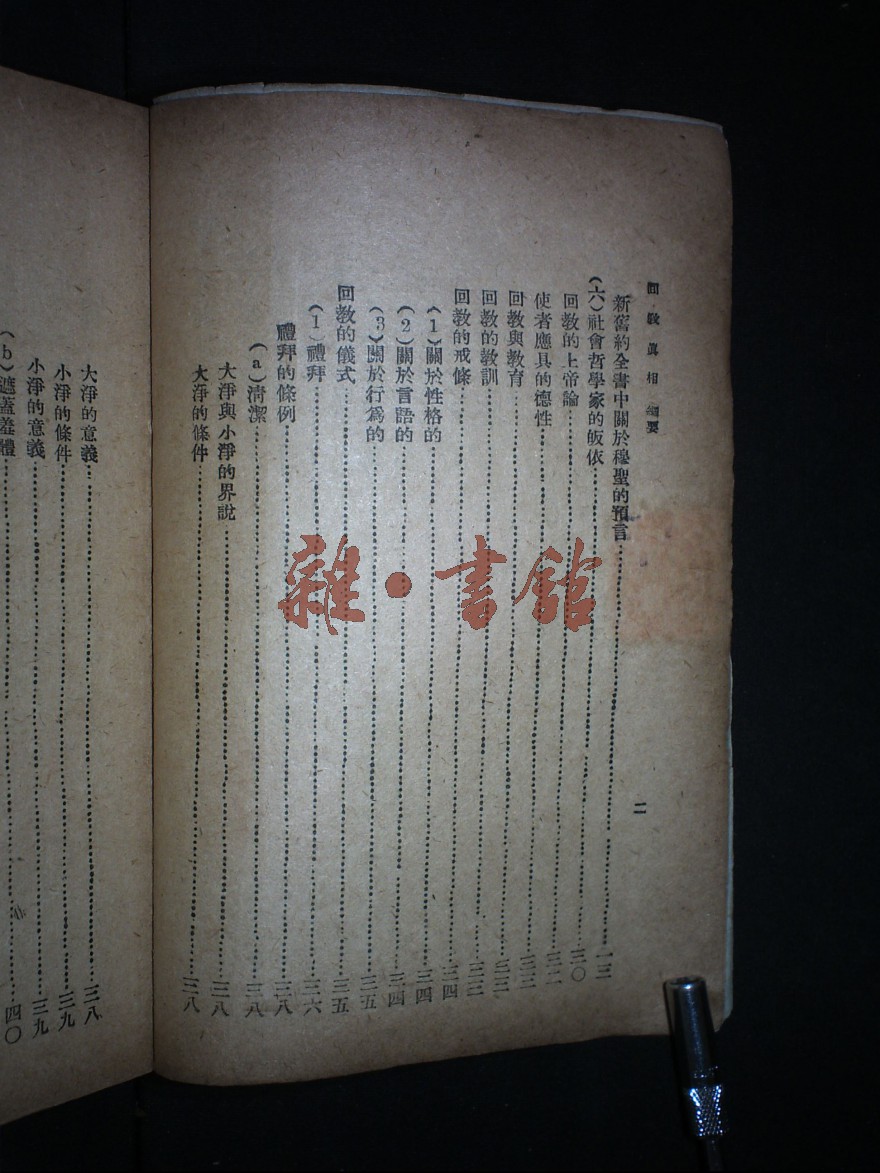 回教眞相 綱要
二
新舊約全書中關於穆聖的預言……一三
(六)社會哲學家的皈依……三〇
回教的上帝論……三二
使者應具的德性……三三
回教與教育……三三
回教的教訓……三三
回教的戒條……三四
(1)關於性格的……三四
(2)關於言語的……三四
(3)關於行爲的……三五
回教的儀式……三五
(1)禮拜……三六
禮拜的條例……三八
(a)清潔……三八
大淨與小淨的界說……三八
大淨的條件……三八
大淨的意義……三八
小淨的條件……三九
小淨的意義……三九
(b)遮蓋羞體……四〇
雜·書館